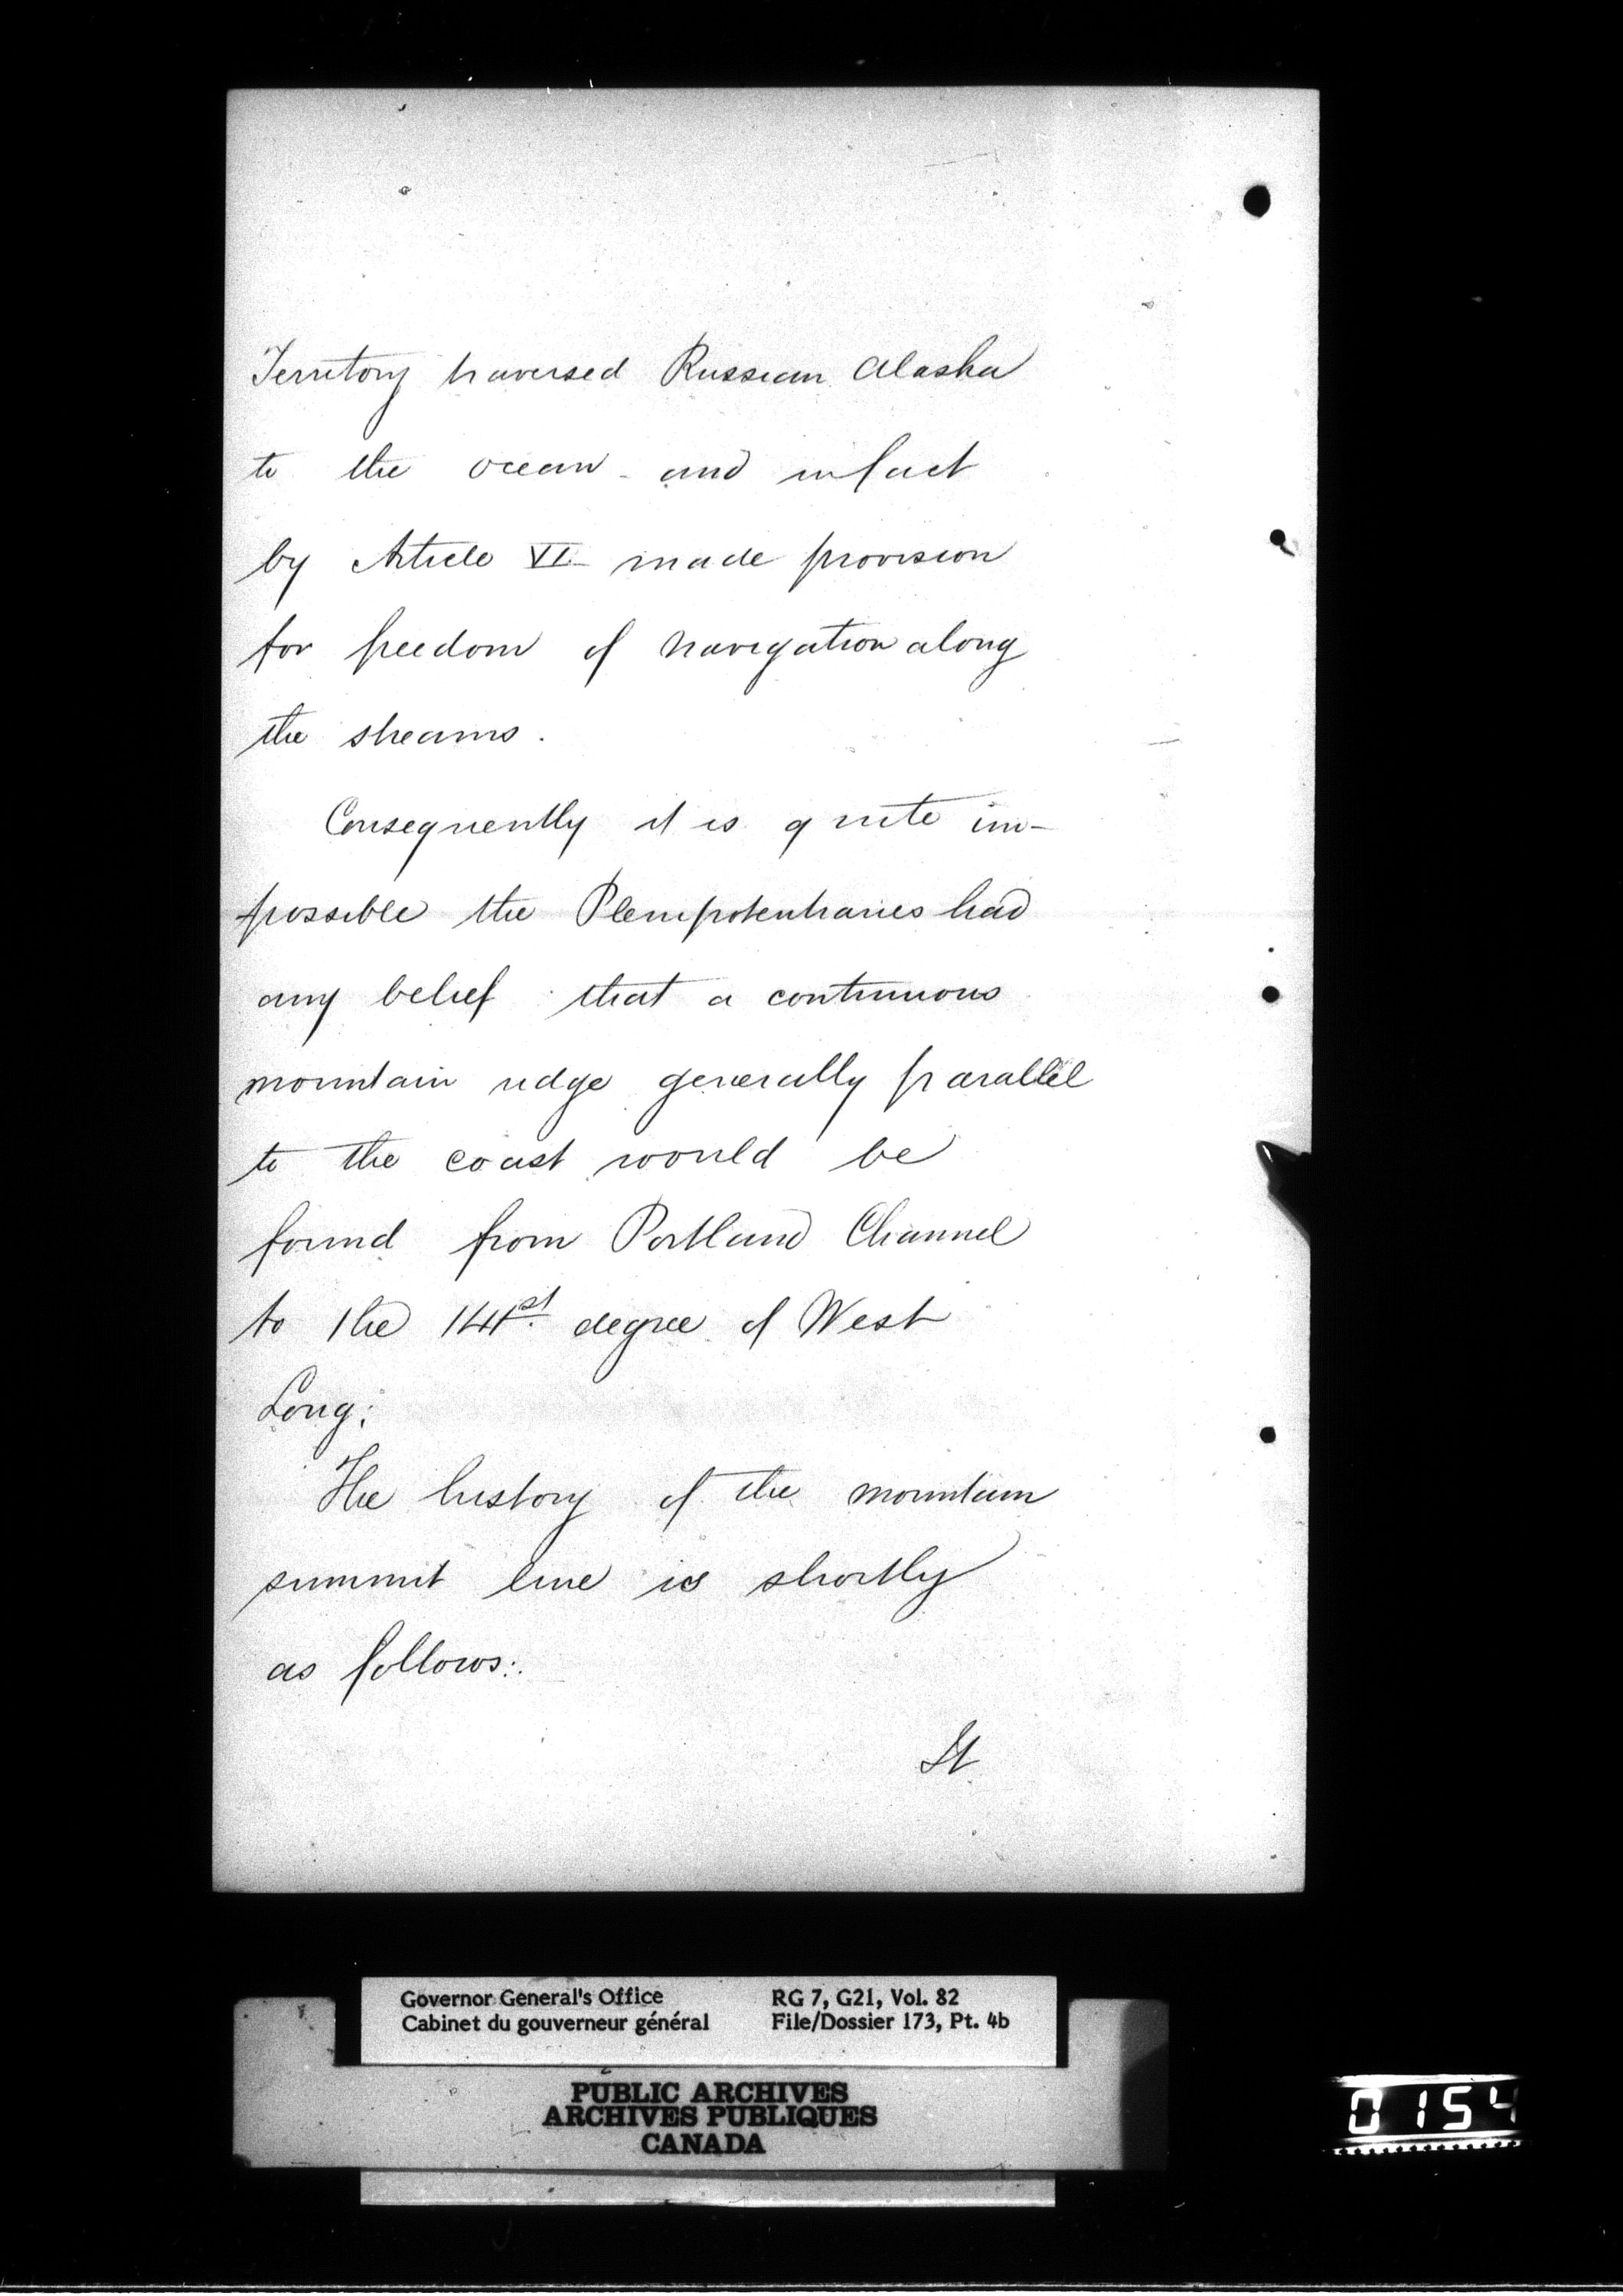 Territory traversed Russian Alaska
to the ocean - and infact
by Article VI made provision
for freedom of navigation along
the streams.
Consequently it is quite im-
possible the Plenipotentiaries had
any belief that a continuous
mountain ridge generally parallel
to the coast would be
found from Portland Channel
to the 141st degree of West
Long:
The history of the mountain
summit line is shortly
as follows:.
It
Governor General's Office RG 7, G21, Vol. 82
Cabinet du gouverneur général File/Dossier 173, Pt. 4b
PUBLIC ARCHIVES
ARCHIVES PUBLIQUES
CANADA
0154